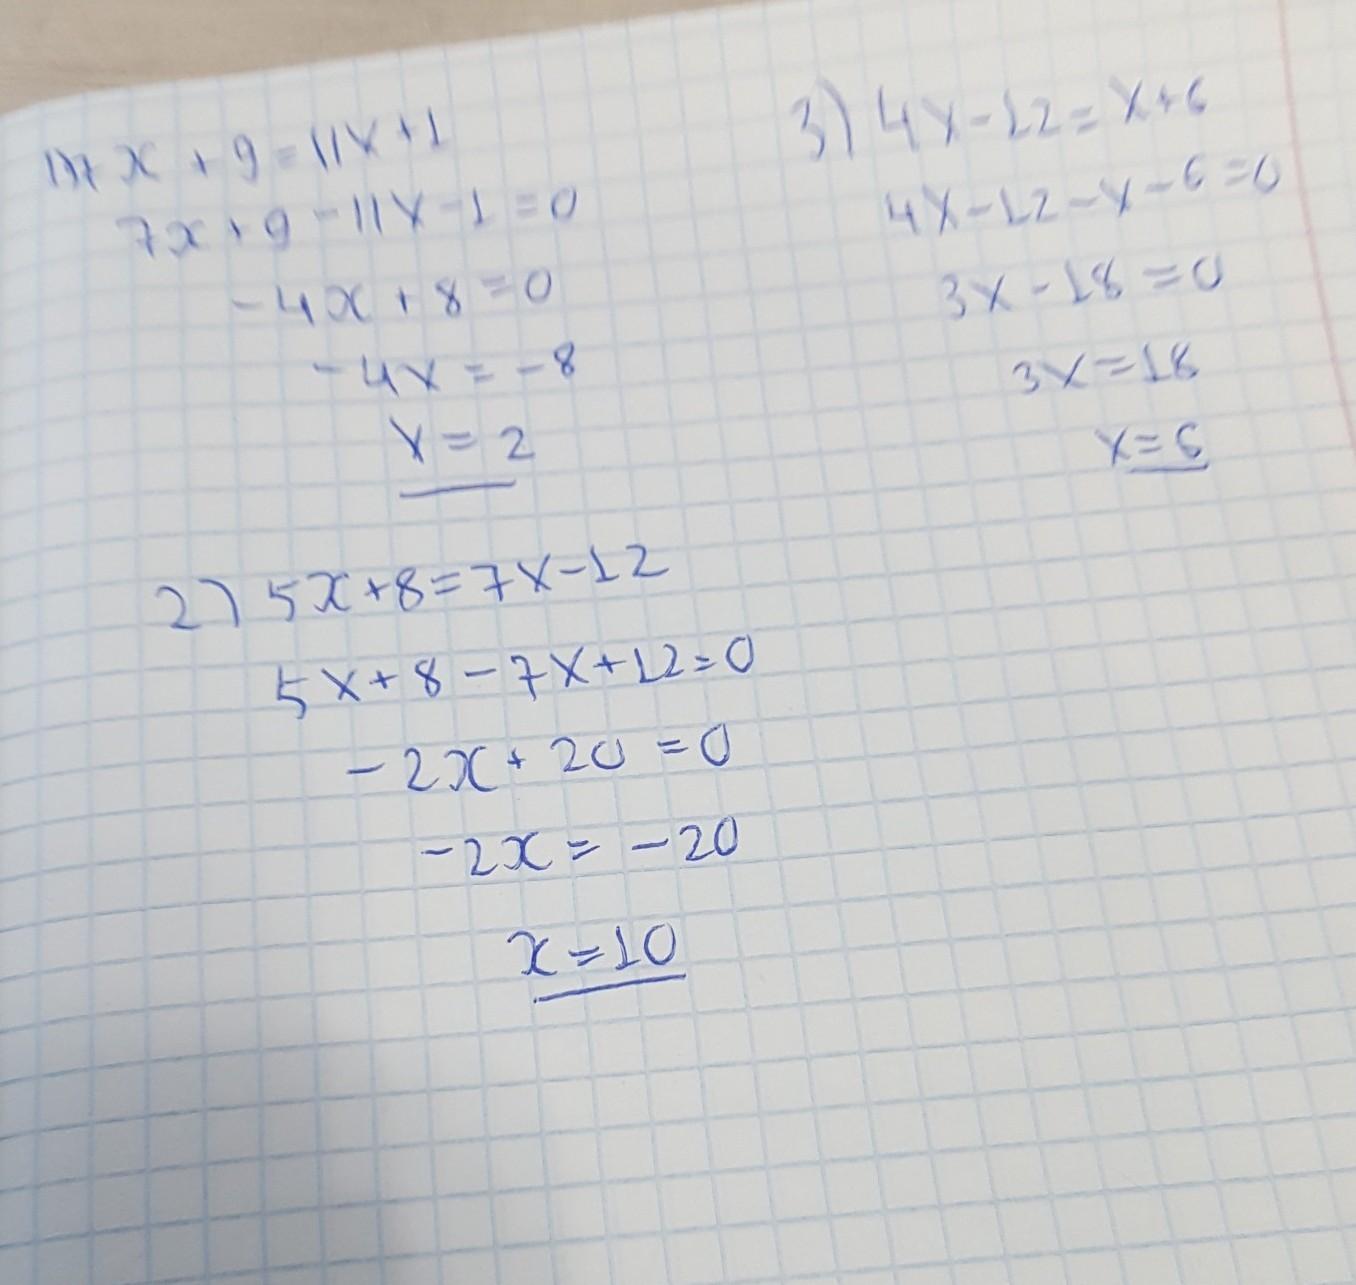 1) 7x + 9 = 11x + 1
7x + 9 - 11x - 1 = 0
- 4x + 8 = 0
- 4x = - 8
x = 2
2) 5x + 8 = 7x - 12
5x + 8 - 7x + 12 = 0
- 2x + 20 = 0
- 2x = - 20
x = 10
3) 4x - 12 = x + 6
4x - 12 - x - 6 = 0
3x - 18 = 0
3x = 18
x = 6